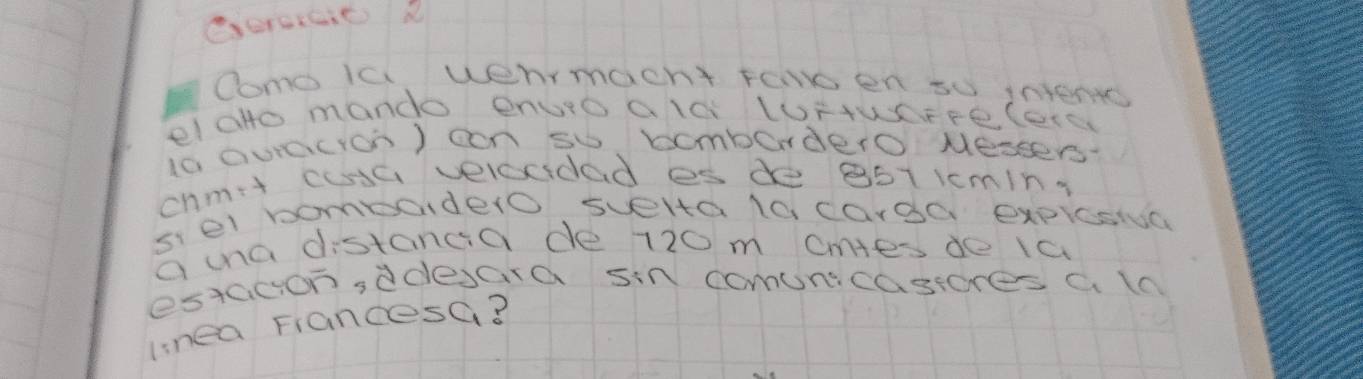 Ejercicio 2
Como la wehrmacht Fallo en su intento
el alto mando envio a la luftwaffe (era
la aviación) con su bombardero Messers-
chmit cuya velocidad es de 857 km/n,
si el bombardero suelta la carga explosiva
a una distancia de 720 m antes de la
estación, ¿dejara sin comunicasiones a la
linea Francesa?